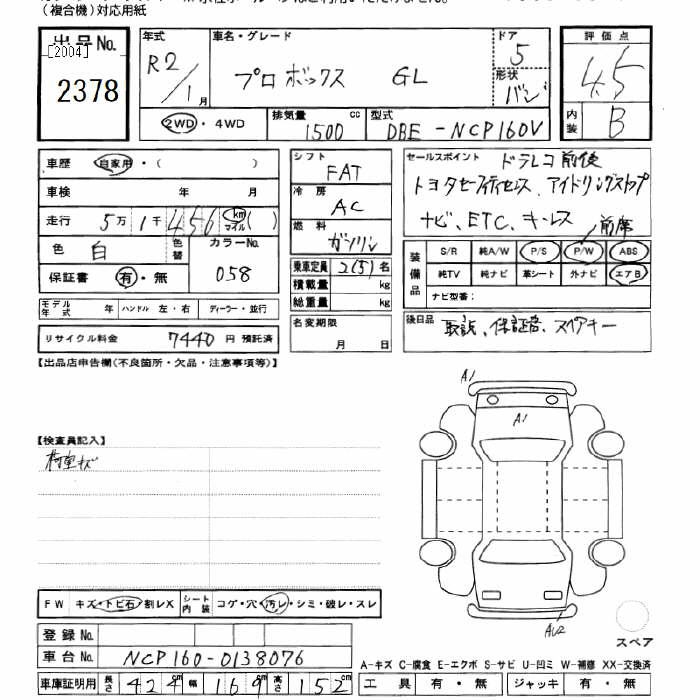 (複合機)対応用紙
出品No.
[2004]
2378
年式
R2/1月
車名・グレード
プロボックス GL
ドア
5
形状
バン
評価点
4.5
内装
B
2WD・4WD
排気量
1500 cc
型式
DBE-NCP160V
車歴
自家用・( )
車検 年 月
走行
5万1千456 km マイル ( )
色
白
色替
カラーNo.
058
保証書
有・無
シフト
FAT
冷房
AC
燃料
ガソリン
乗車定員 2(5)名
積載量 kg
総重量 kg
セールスポイント ドラレコ前後
トヨタセーフティセンス、アイドリングストップ
ナビ、ETC、キーレス
前席
装備品
S/R 純A/W P/S P/W ABS
純TV 純ナビ 革シート 外ナビ エアB
ナビ型番:
モデル年式 年 ハンドル 左・右 ディーラー・並行
名変期限
月 日
後日品
取説、保証書、スペアキー
リサイクル料金 7440 円 預託済
【出品店申告欄(不良箇所・欠品・注意事項等)】
A1
A1
【検査員記入】
荷室キズ
FW キズ・トビ石・割レX
シート内装 コゲ・穴・汚レ・シミ・破レ・スレ
登録No.
車台No. NCP160-0138076
AU2
スペア
A-キズ C-腐食 E-エクボ S-サビ U-凹ミ W-補修 XX-交換済
車庫証明用 長さ 424 cm 幅 169 cm 高さ 152 cm
工具 有・無 ジャッキ 有・無